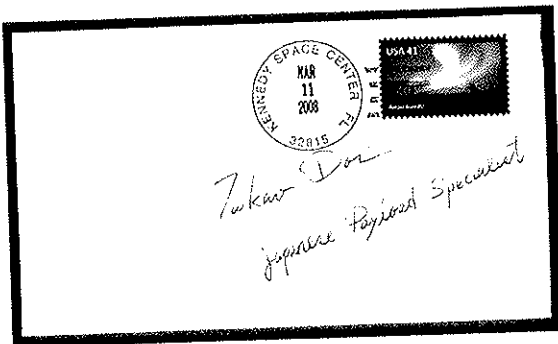 USA 41
KENNEDY SPACE CENTER FL
MAR
11
2008
32815
Takao Doi
Japanese Payload Specialist